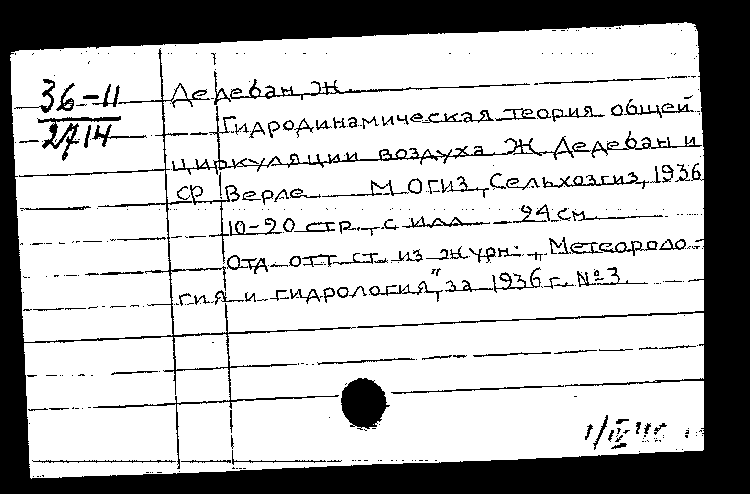 36-11
2714
Дедебан, Ж.
Гидродинамическая теория общей
циркуляции воздуха Ж Дедебан и
ф Верле М ОГИЗ, Сельхозгиз, 1936
10-20 стр., с илл 24 см
Отд. отт. ст. из журн: „Метеороло-
гия и гидрология", за 1936 г. №3.